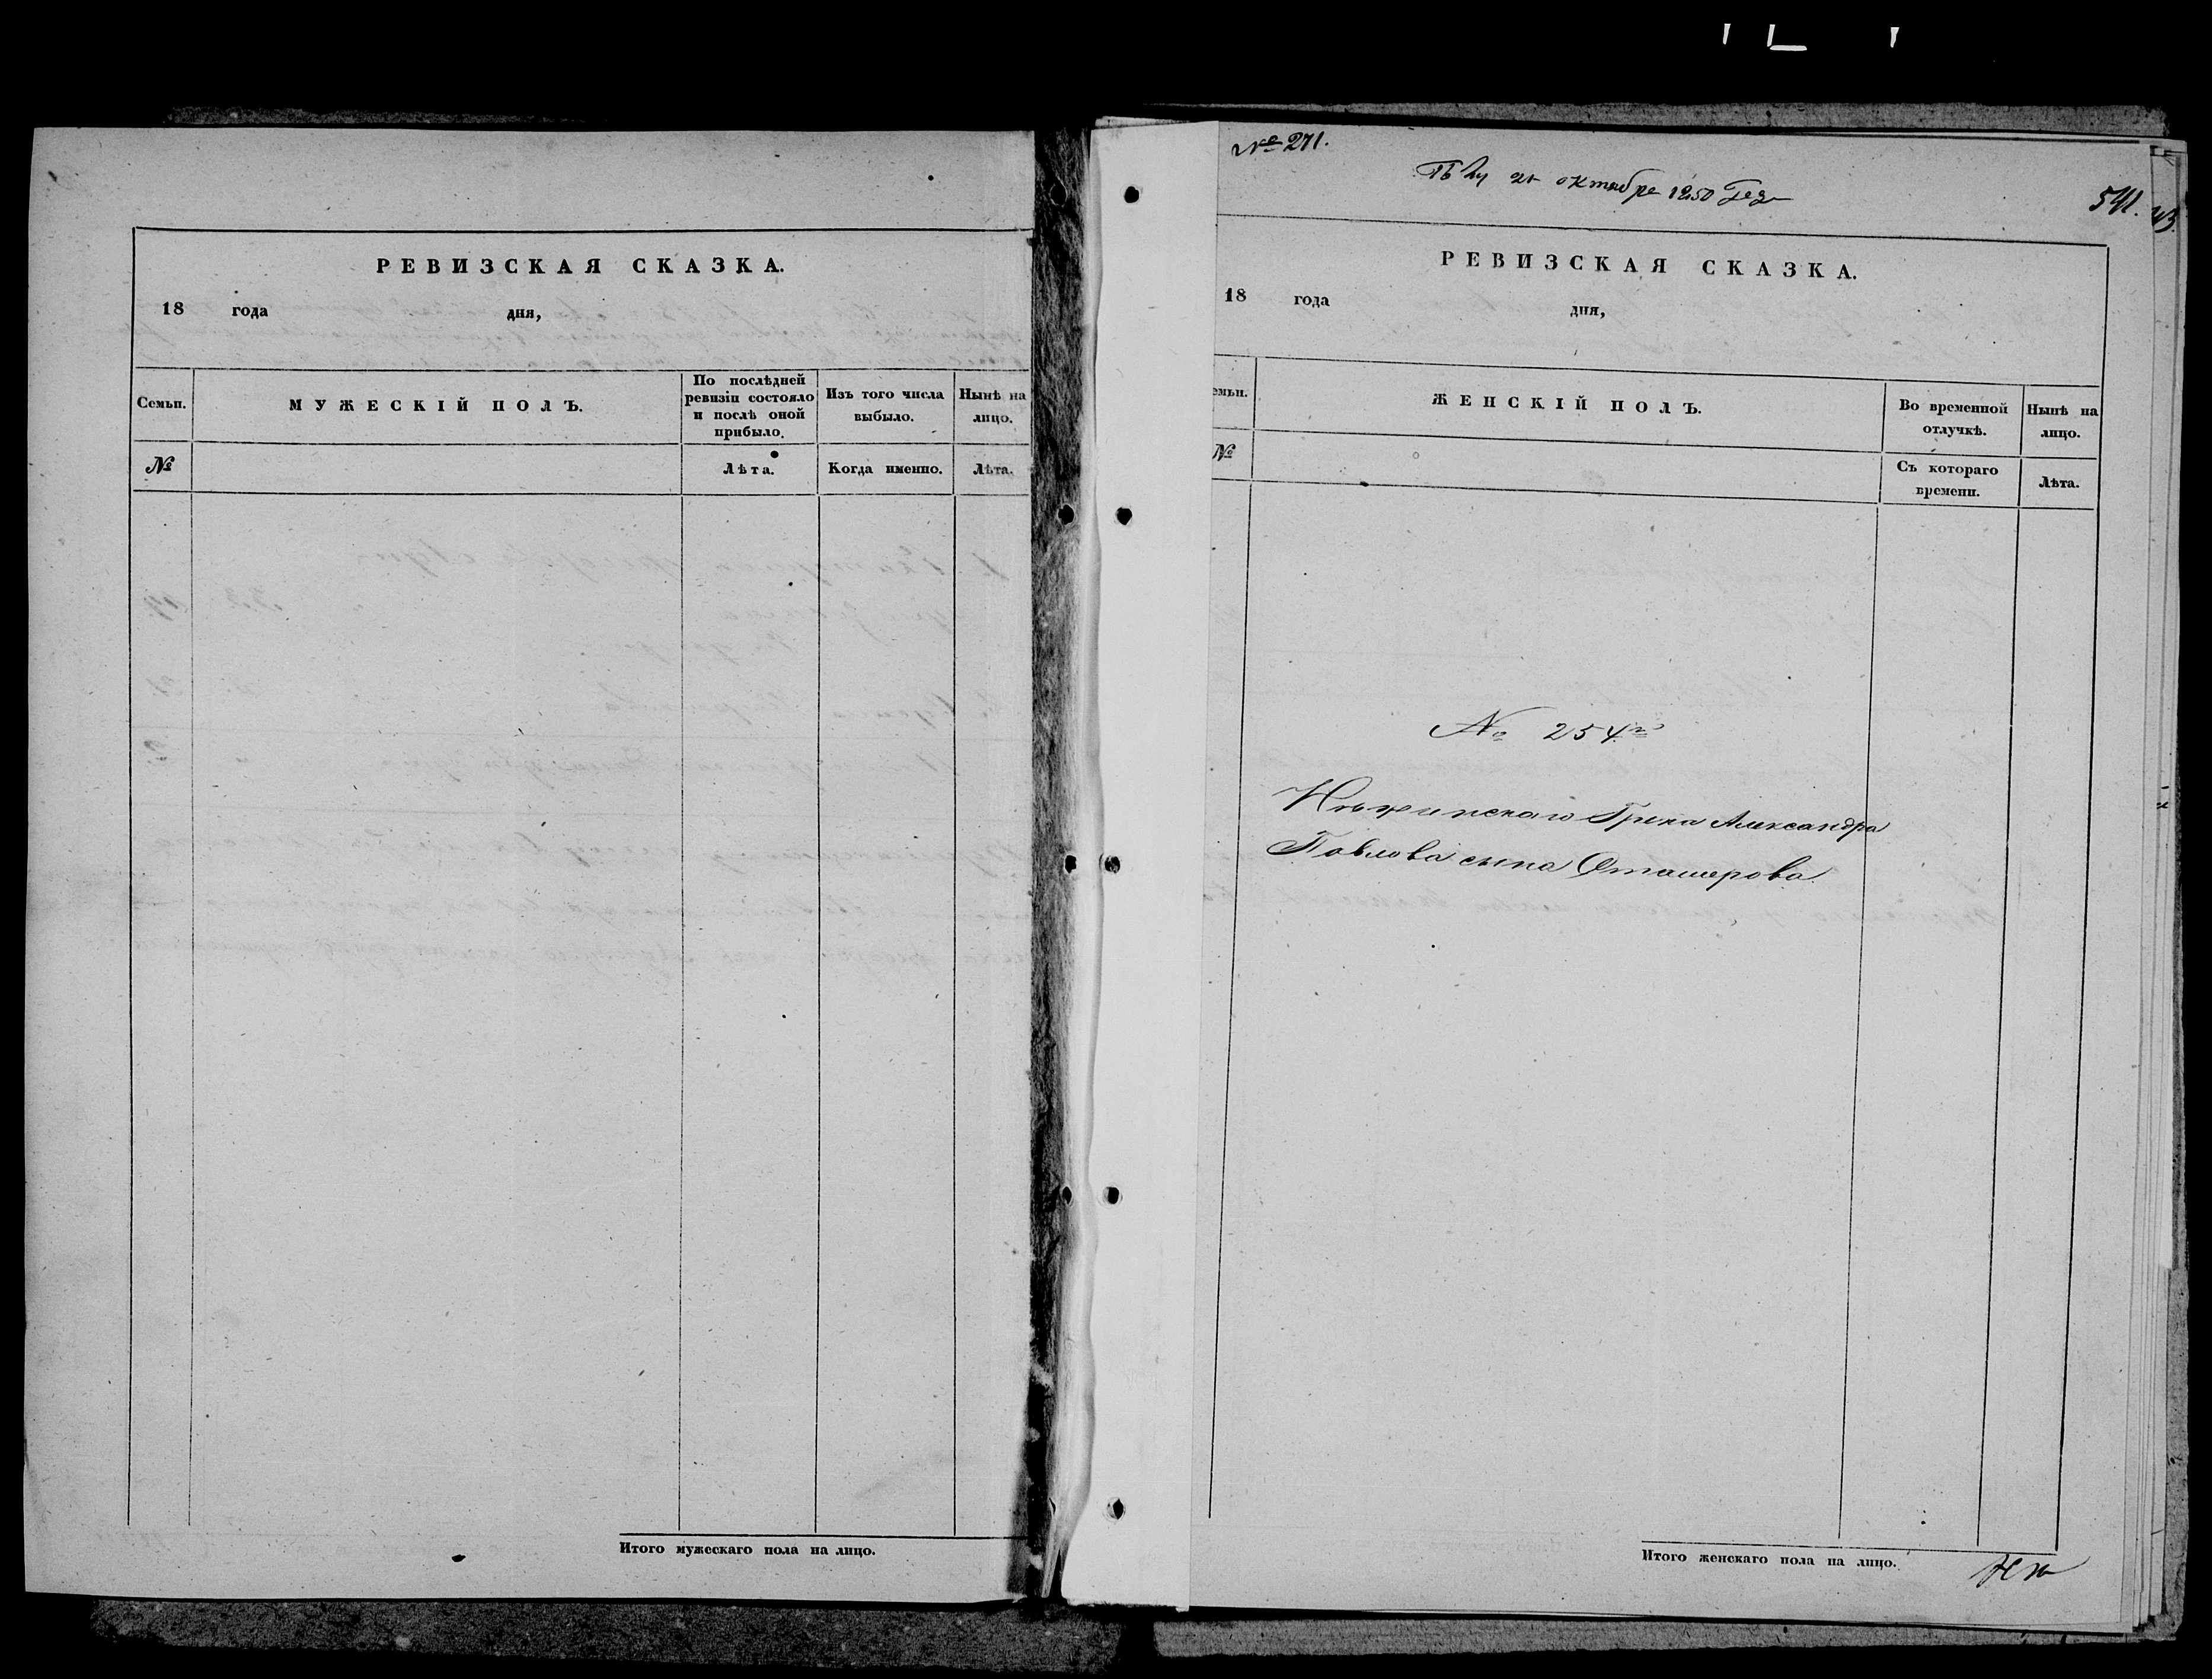 РЕВИЗСКАЯ СКАЗКА.
18 года дня,
Семьи.
МУЖЕСКІЙ ПОЛЪ.
По послѣдней ревизіи состояло и послѣ оной прибыло.
Изъ того числа выбыло.
Нынѣ на лицо.
№
Лѣта.
Когда именно.
Лѣта.
Итого мужескаго пола на лицо.
№ 271.
21 октября 1850 Года
541.
43
РЕВИЗСКАЯ СКАЗКА.
18 года дня,
емьи.
ЖЕНСКІЙ ПОЛЪ.
Во временной отлучкѣ.
Нынѣ на лицо.
№
Съ котораго времени.
Лѣта.
№ 254й
Нѣжинскаго Грека Александра
Павлова сына
Итого женскаго пола на лицо.